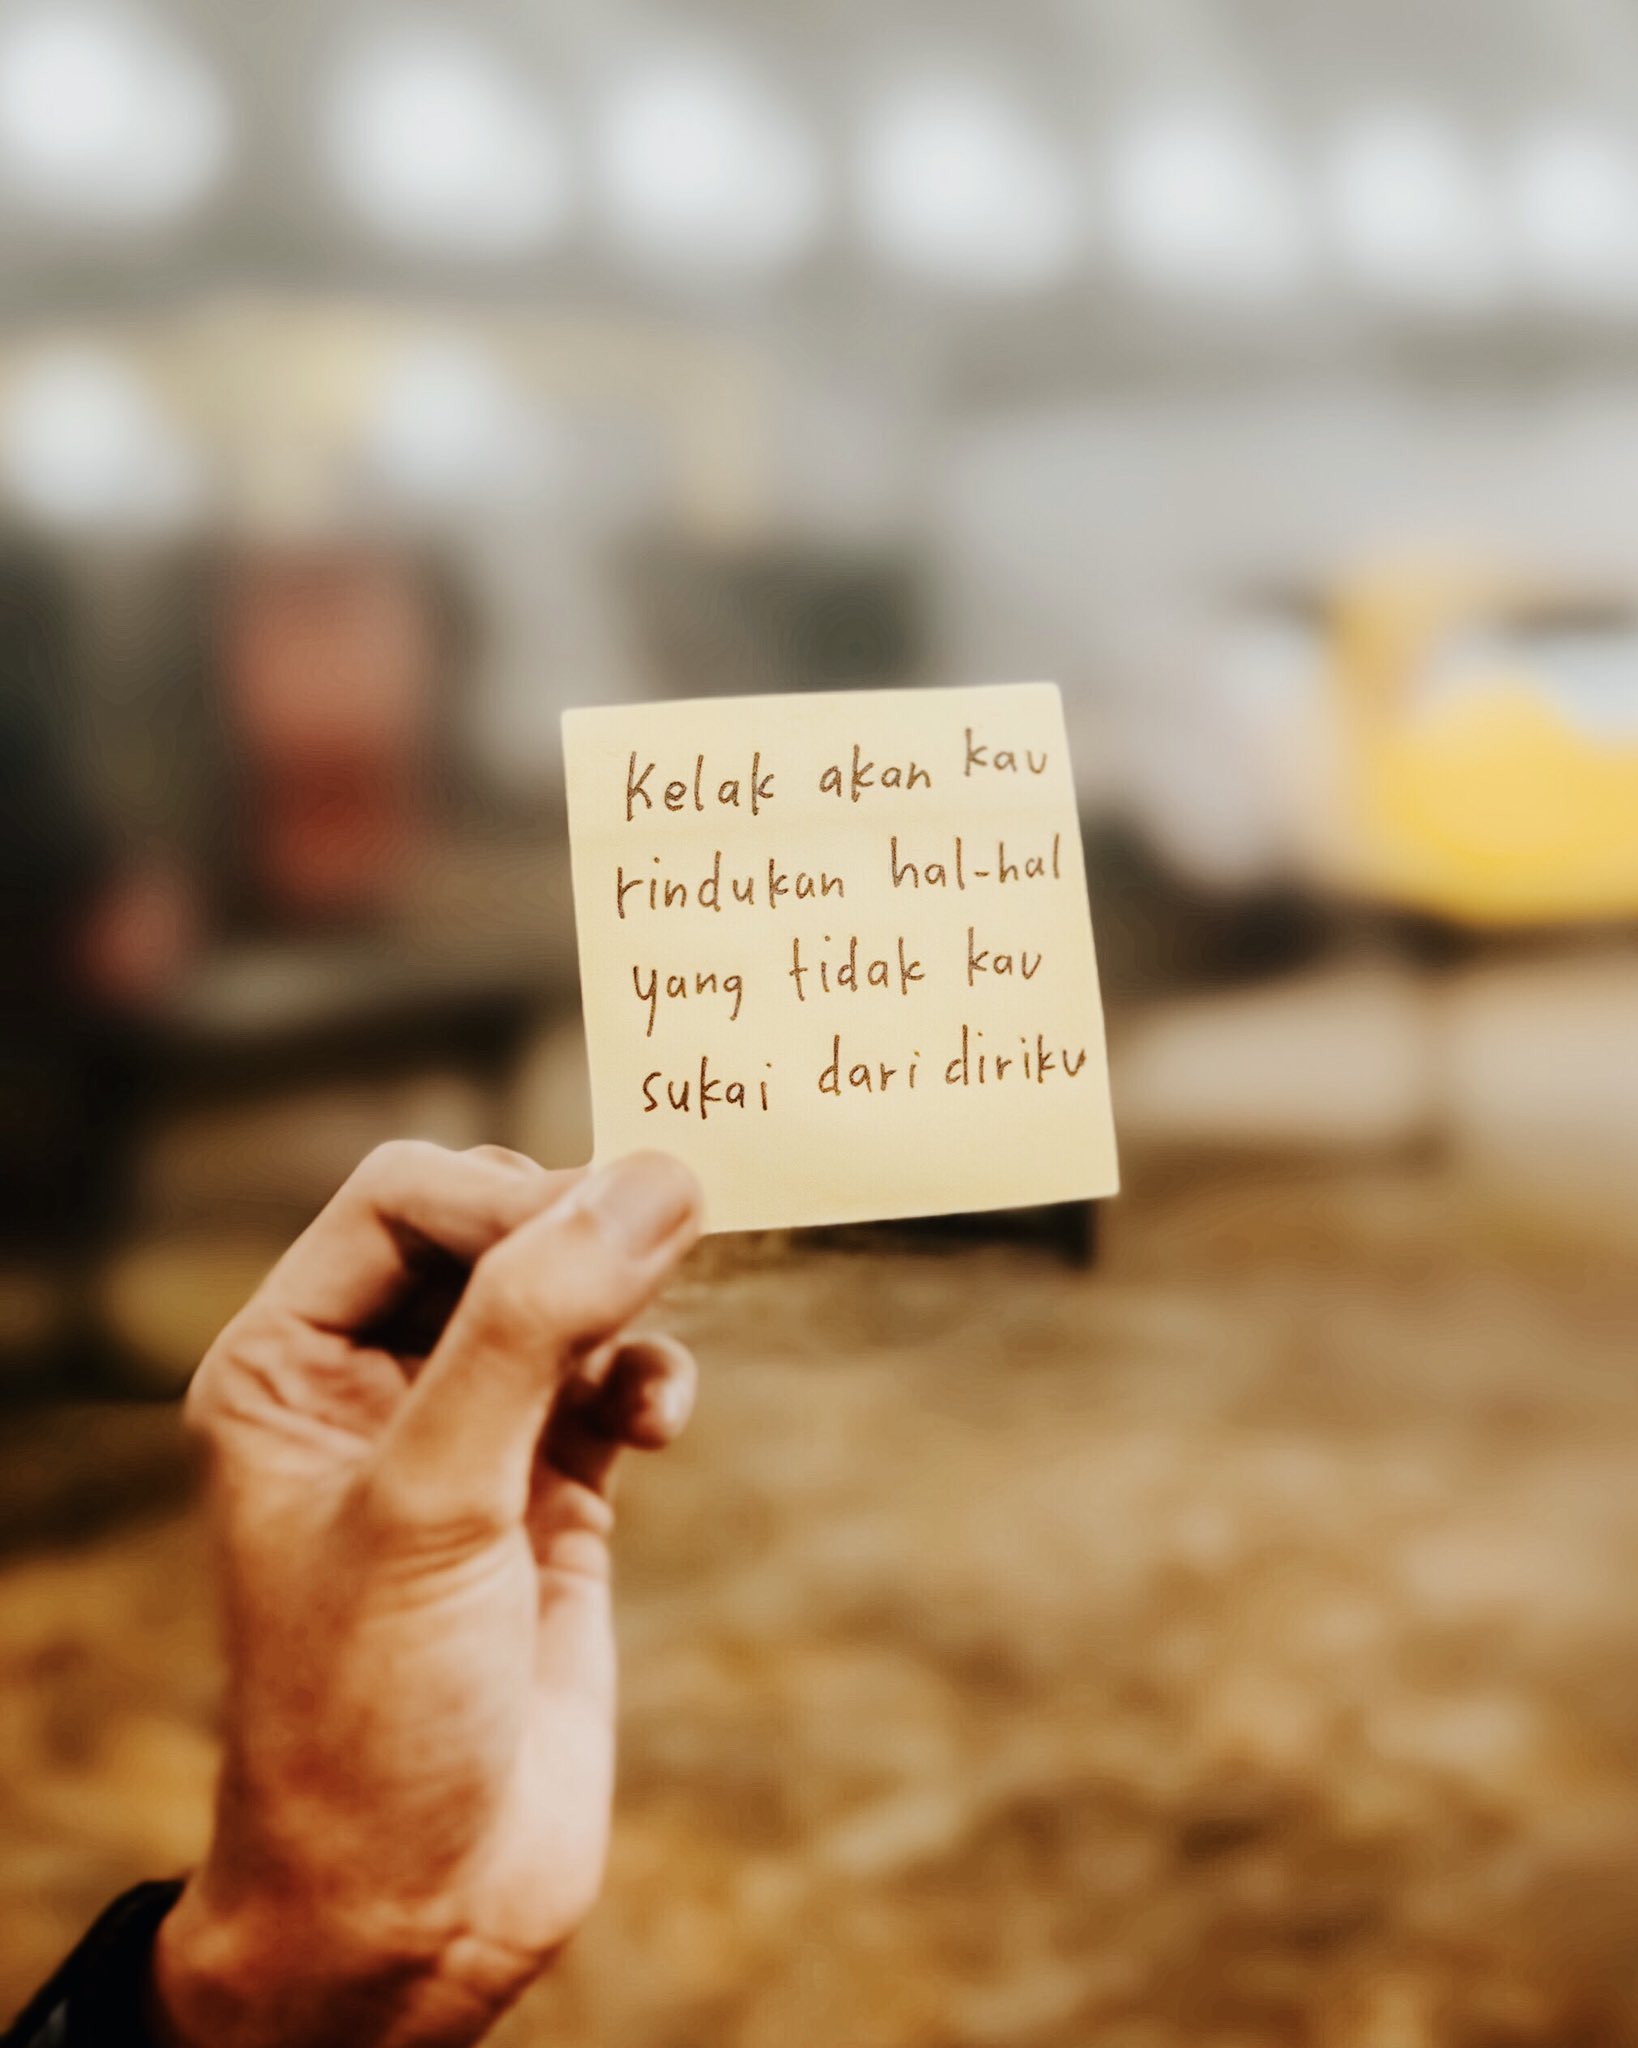 Kelak akan kau
rindukan hal-hal
yang tidak kau
sukai dari diriku